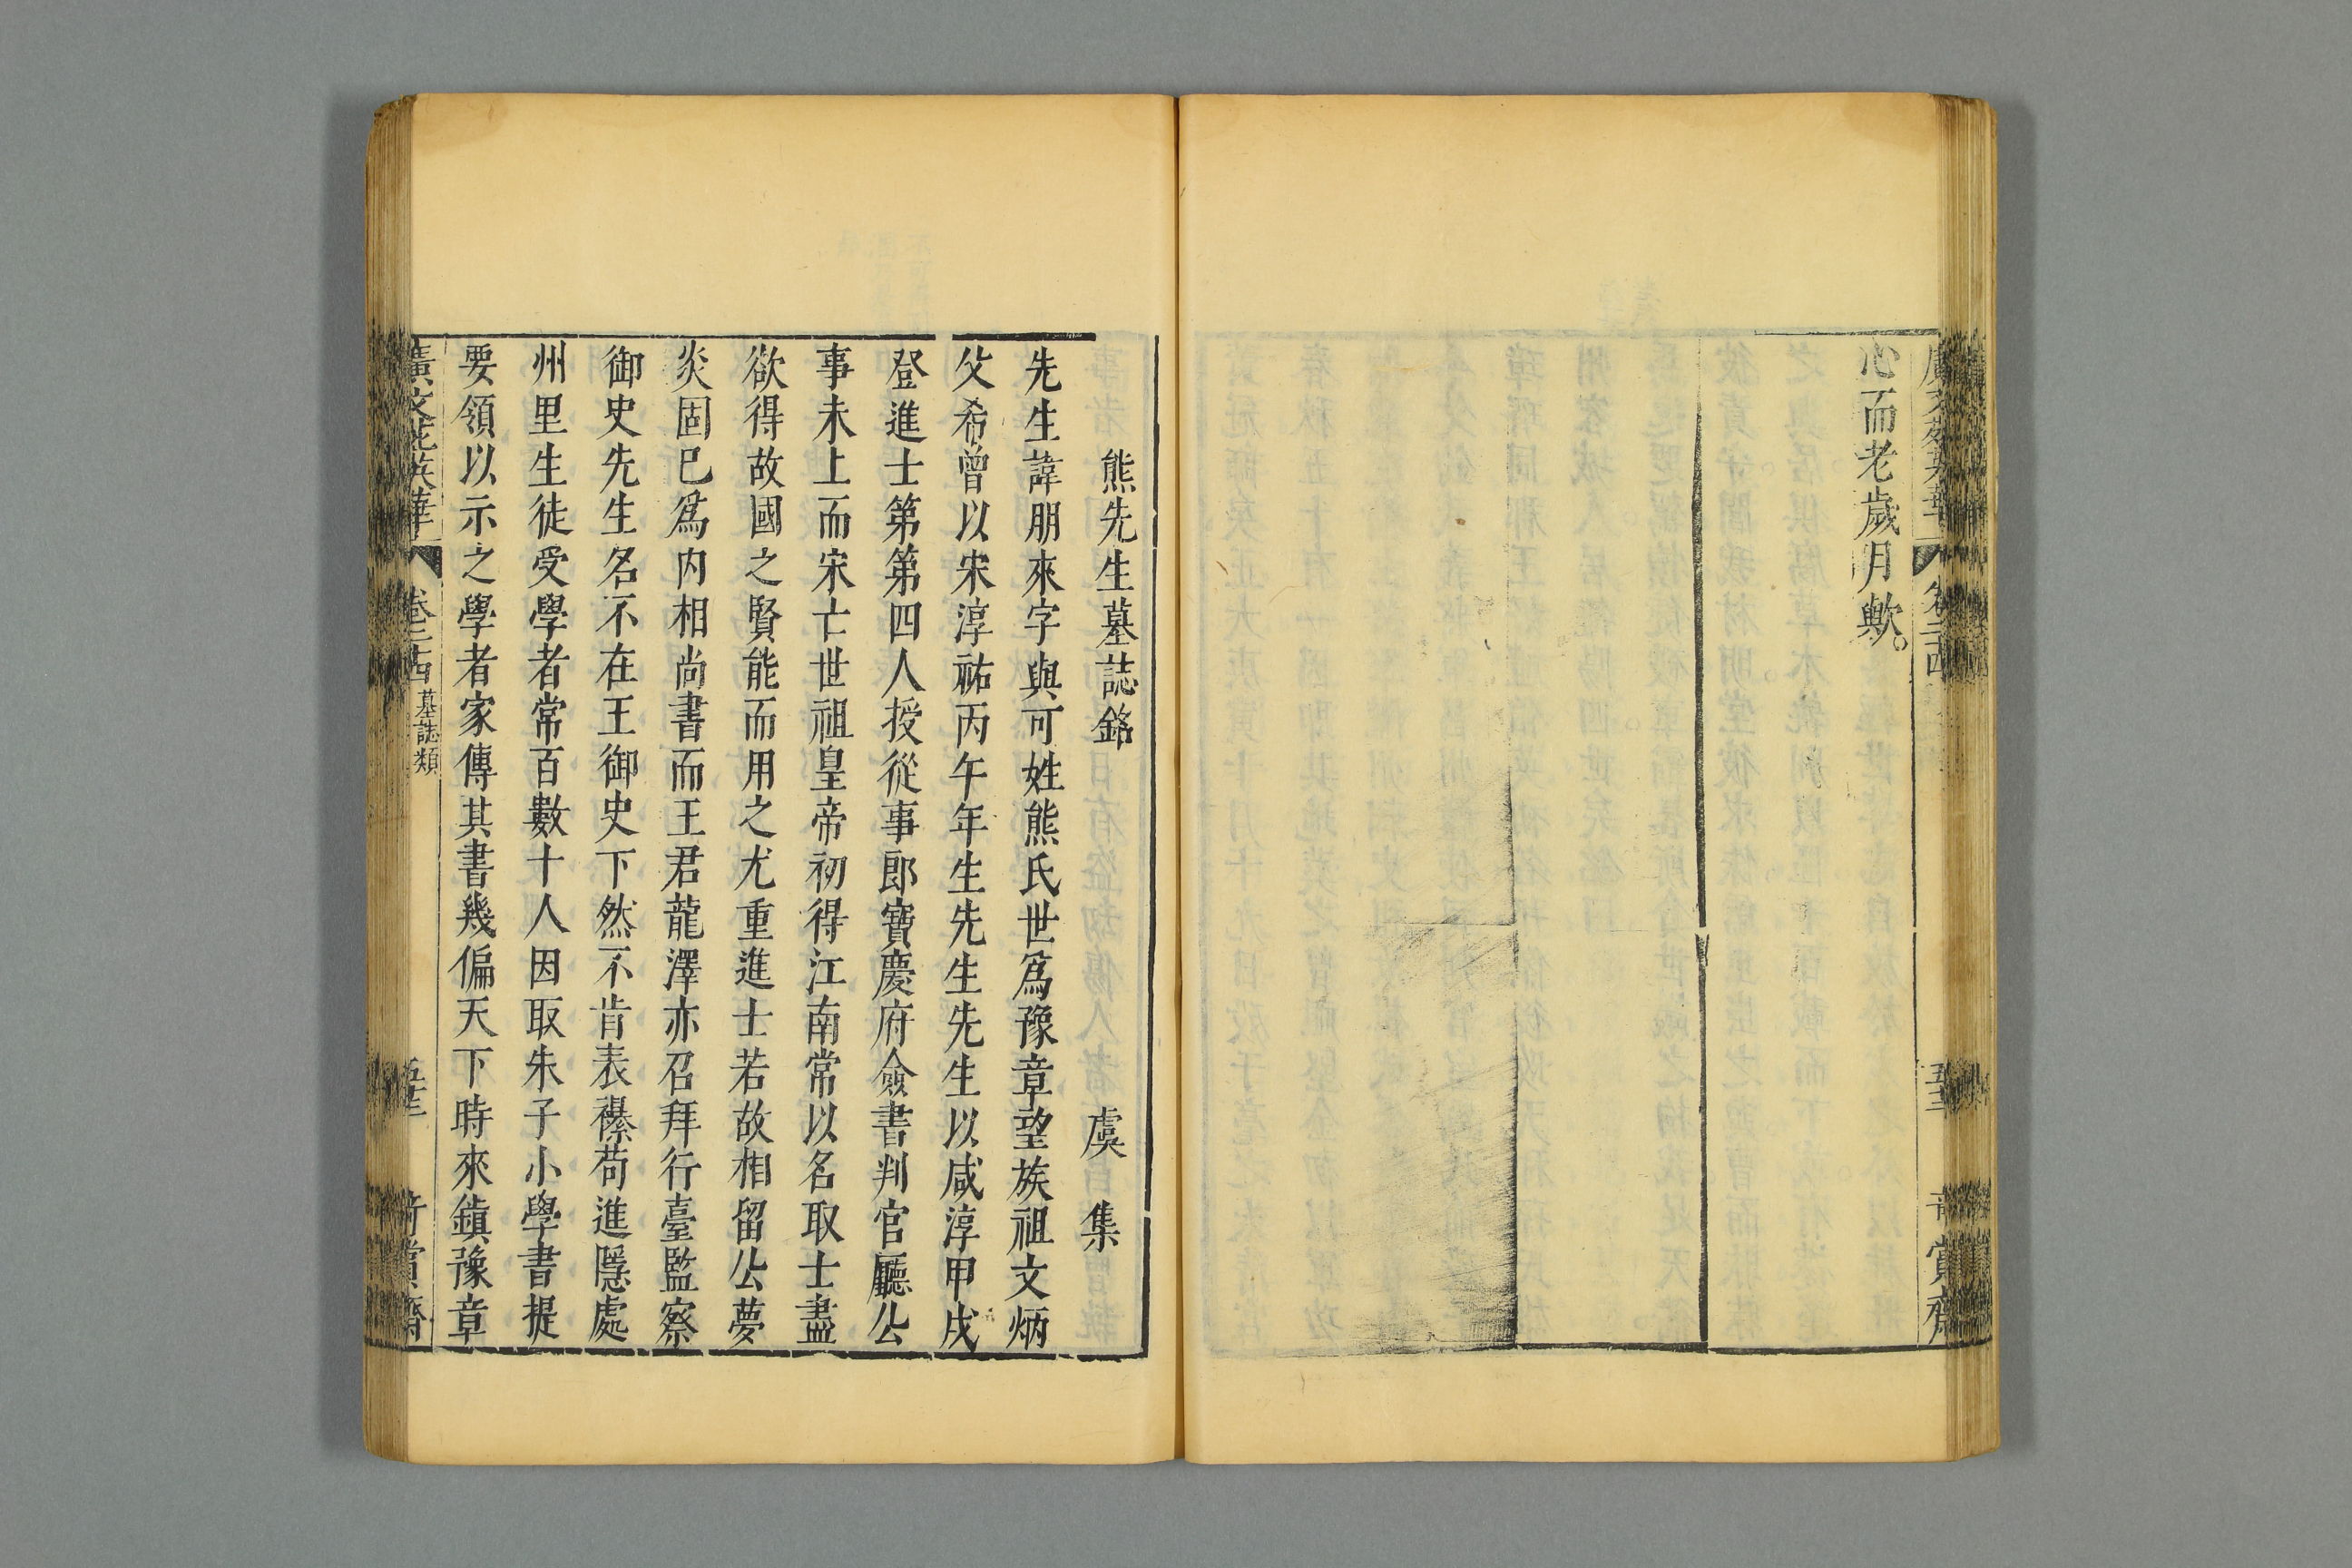 心而老歲月歟。
熊先生墓誌銘 虞集
先生諱朋來字與可姓熊氏世爲豫章望族祖文炳
父希曾以宋淳祐丙午年生先生先生以咸淳甲戌
登進士第第四人授從事郎寶慶府僉書判官廳公
事未上而宋亡世祖皇帝初得江南常以名取士盡
欲得故國之賢能而用之尤重進士若故相留公夢
炎固已爲内相尚書而王君龍澤亦召拜行臺監察
御史先生名不在王御史下然不肯表襮苟進隱處
州里生徒受學者常百數十人因取朱子小學書提
要領以示之學者家傳其書幾偏天下時來鎮豫章
廣文苑英華 卷二十四 墓誌類